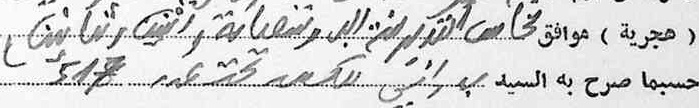 ( هجرية ) موافق خامس اكتوبر سنة الف وتسعمائة واثنين وثمانين
حسبما صرح به السيد تحت عدد 517